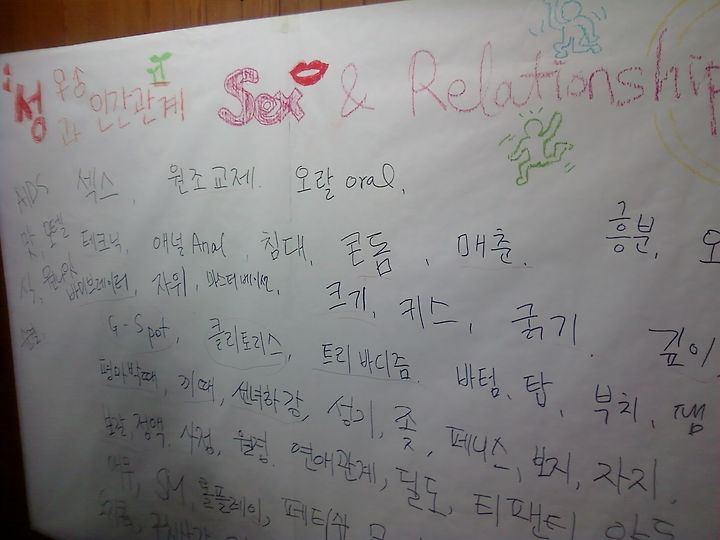 성 우송
과 인간관계 Sex & Relationship
AIDS 섹스, 원조교제. 오랄 oral,
모텔 테크닉, 애널 Anal, 침대, 콘돔, 매춘. 흥분,
바이브레이터, 자위, 마스터베이션, 크기, 키스, 굵기. 깊이,
G-Spot, 클리토리스, 트리바디즘. 바텀, 탑, 부치, 땜
끼때, 선녀하강, 성기, 좆, 페니스, 보지, 자지.
정액. 사정, 월경. 연애관계, 딜도, 티팬티
SM, 롤플레이, 페티쉬